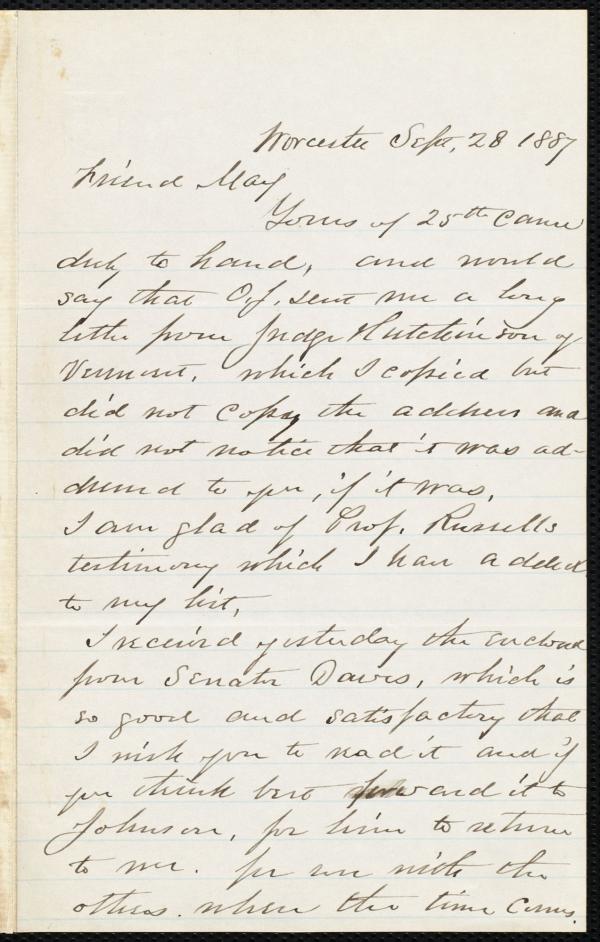 Worcester Sept, 28 1887
Friend May
Yours of 25th came
duly to hand, and would
say that O.J. sent me a long
letter from Judge Hutchinson of
Vermont, which I copied but
did not copy the address and
did not notice that it was ad-
dressed to you, if it was,
I am glad of Prof. Russells
testimony which I have added
to my list,
I received yesterday the enclosed
from Senator Dawes, which is
so good and satisfactory that
I wish you to read it and if
you think best forward it to
Johnson, for him to return
to me. for use with the
others. when the time comes.